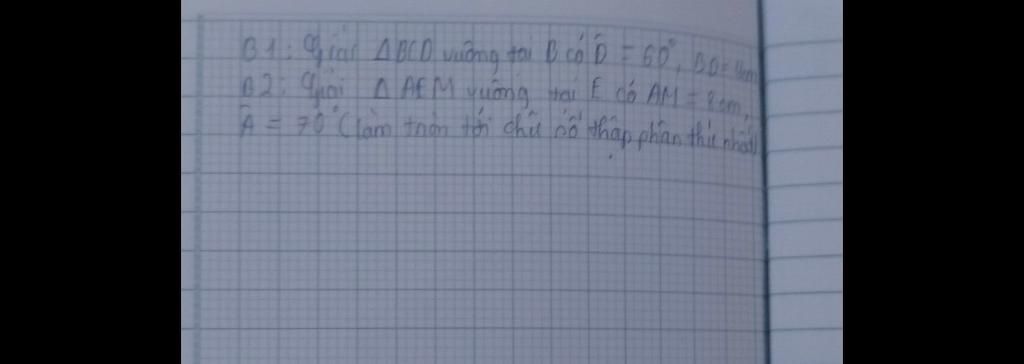 B1: Giải ΔBCD vuông tại B có D̂ = 60°, BD = 4cm
B2: Giải ΔAEM vuông tại E có AM = 8cm,
Â = 70° (làm tròn tới chữ số thập phân thứ nhất)